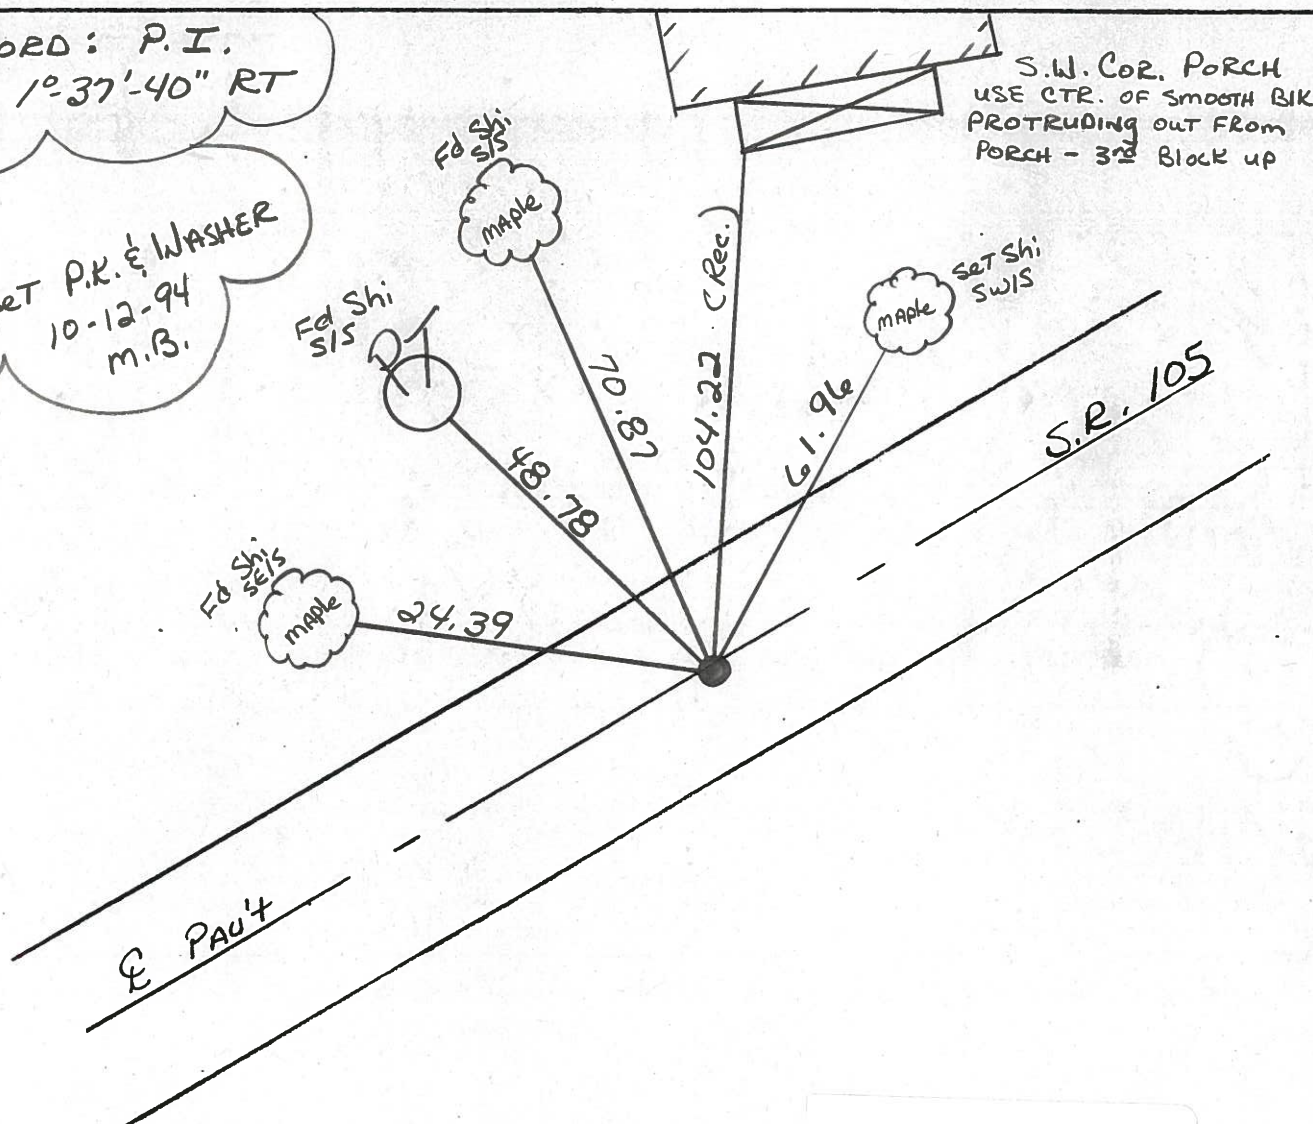 ORD: P.I.
1°-37'-40" RT
SET P.K. & WASHER
10-12-94
M.B.
S.W. COR. PORCH
USE CTR. OF SMOOTH BLK
PROTRUDING OUT FROM
PORCH - 3rd BLOCK UP
Fd Shi
S/S
MAPLE
Fd Shi
S/S
Set Shi
SW/S
MAPLE
Fd Shi
SE/S
MAPLE
48.78
70.87
104.22 (Rec.)
61.96
24.39
S.R. 105
℄ PAV't